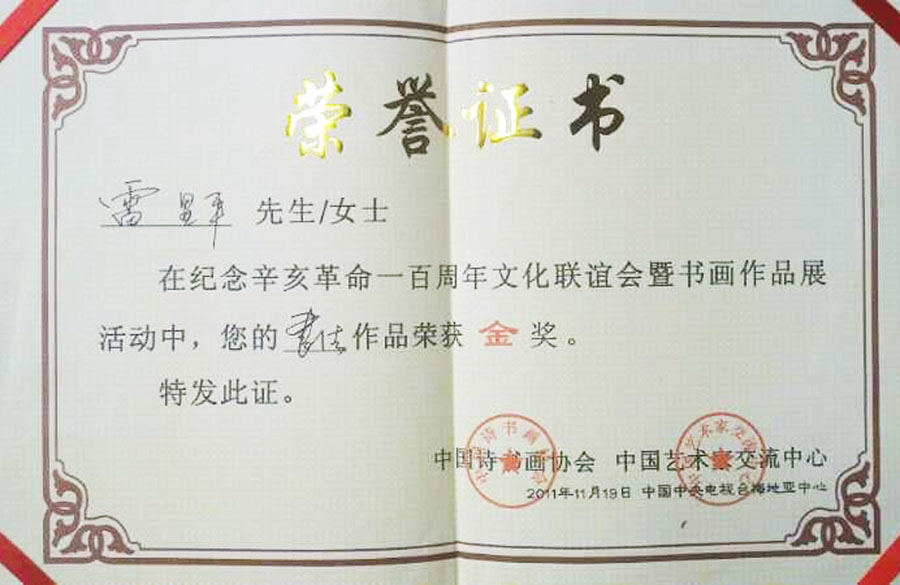 荣誉证书
雷显平 先生/女士
在纪念辛亥革命一百周年文化联谊会暨书画作品展
活动中，您的书法作品荣获 金 奖。
特发此证。
中国诗书画协会 中国艺术家交流中心
2011年11月19日 中国中央电视台梅地亚中心